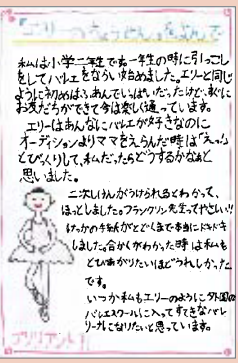 「エリーのちょうせん」をよんで
私は小学二年です。一年生の時に引っこし
をしてバレエをならい始めました。エリーと同じ
ように初めはふあんでいっぱいだったけど、すぐに
お友だちができて今は楽しく通っています。
エリーはあんなにバレエが好きなのに
オーディションよりママをえらんだ時は「えっ」
とびっくりして、私だったらどうするかなぁと
思いました。
二次しけんがうけられるとわかって、
ほっとしました。フランクリン先生ってやさしい!!
けっかの手紙がとどくまで本当にドキドキ
しました。合かくがわかった時は私も
とびあがりたいほどうれしかった
です。
いつか私もエリーのように外国の
バレエスクールに入ってすてきなバレ
リーナになりたいと思っています。